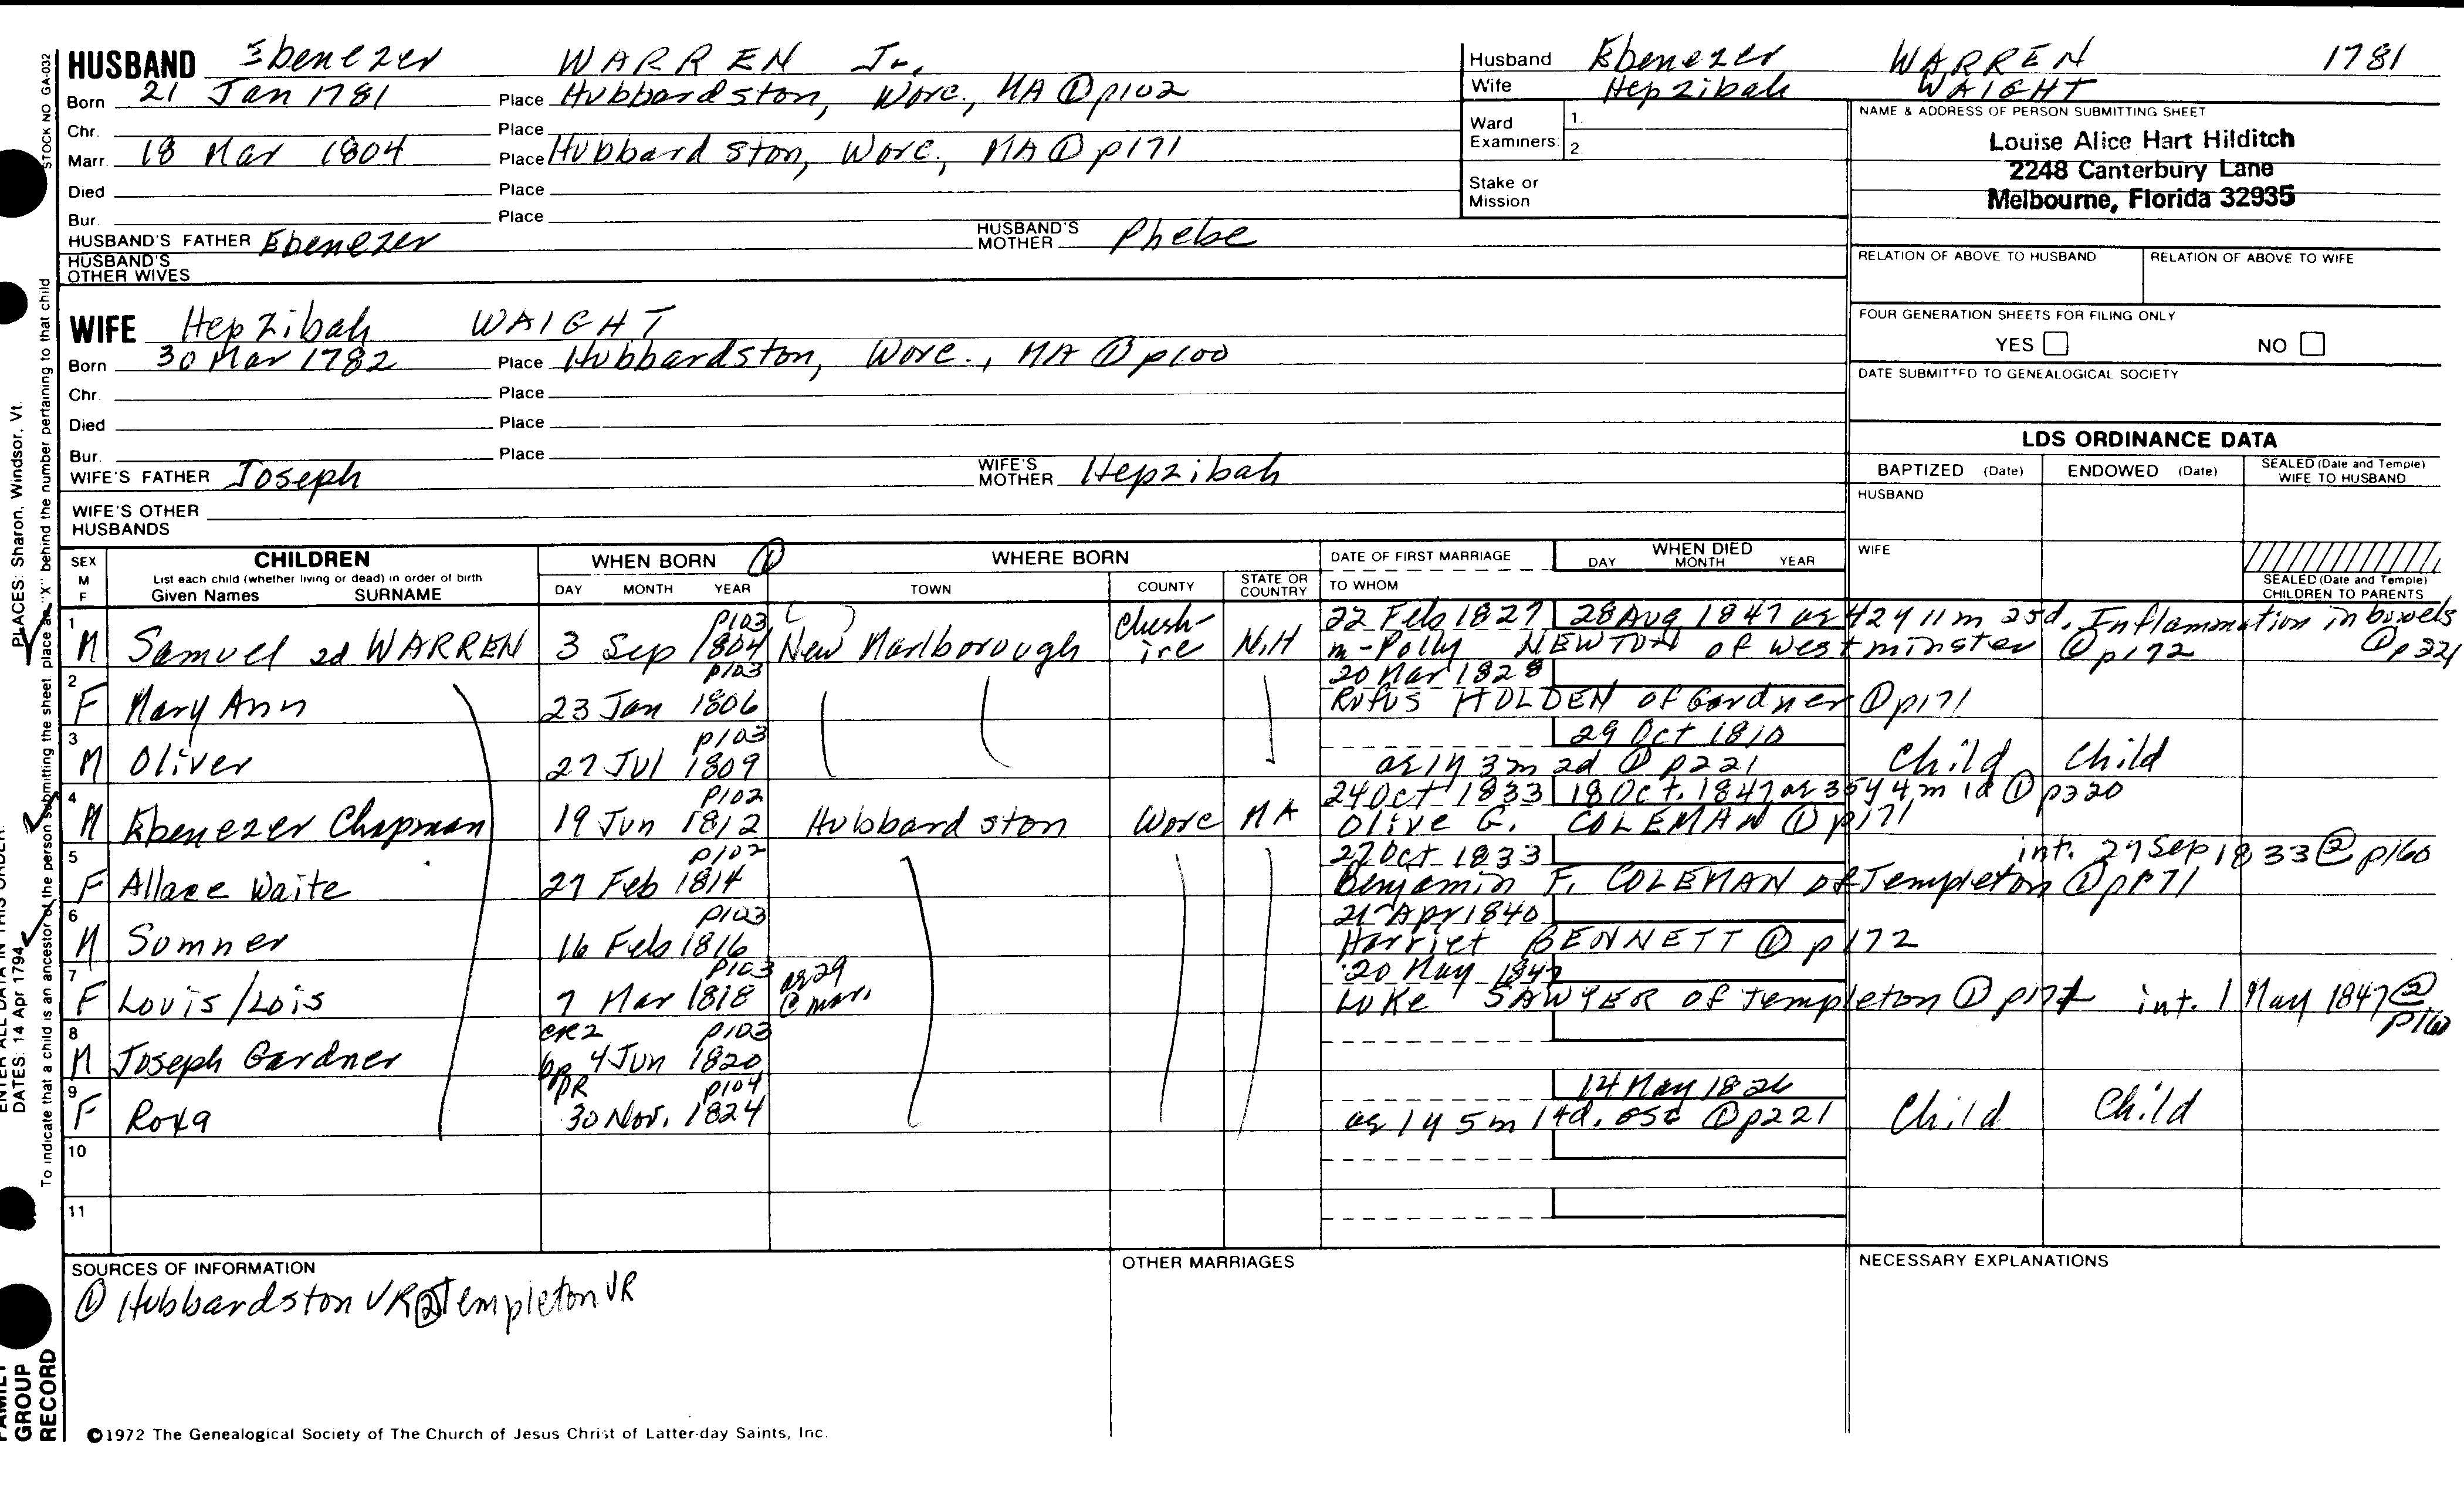 HUSBAND Ebenezer WARREN Jr.
Born 21 Jan 1781 Place Hubbardston, Worc., MA ① p102
Chr. Place
Marr. 18 Mar 1804 Place Hubbardston, Worc., MA ① p171
Died Place
Bur. Place
HUSBAND'S FATHER Ebenezer HUSBAND'S MOTHER Phebe
HUSBAND'S OTHER WIVES
WIFE Hepzibah WAIGHT
Born 30 Mar 1782 Place Hubbardston, Worc., MA ① p100
Chr. Place
Died Place
Bur. Place
WIFE'S FATHER Joseph WIFE'S MOTHER Hepzibah
WIFE'S OTHER HUSBANDS
Husband Ebenezer WARREN 1781
Wife Hepzibah WAIGHT
Ward Examiners 1.
2.
Stake or Mission
NAME & ADDRESS OF PERSON SUBMITTING SHEET
Louise Alice Hart Hilditch
2248 Canterbury Lane
Melbourne, Florida 32935
RELATION OF ABOVE TO HUSBAND RELATION OF ABOVE TO WIFE
FOUR GENERATION SHEETS FOR FILING ONLY
YES NO
DATE SUBMITTED TO GENEALOGICAL SOCIETY
LDS ORDINANCE DATA
BAPTIZED (Date) ENDOWED (Date) SEALED (Date and Temple) WIFE TO HUSBAND
HUSBAND
WIFE
SEALED (Date and Temple) CHILDREN TO PARENTS
SEX M F CHILDREN WHEN BORN ① WHERE BORN DATE OF FIRST MARRIAGE WHEN DIED
List each child (whether living or dead) in order of birth
Given Names SURNAME DAY MONTH YEAR TOWN COUNTY STATE OR COUNTRY TO WHOM DAY MONTH YEAR
1 p103 22 Feb 1827 28 Aug 1847 ae 42y 11m 25d. Inflammation in bowels
M Samuel 2d WARREN 3 Sep 1804 New Marlborough Chesh-ire N.H m-Polly NEWTON of Westminster ① p172 ① p221
2 p103 20 Mar 1828
F Mary Ann 23 Jan 1806 Rufus HOLDEN of Gardner ① p171
3 p103 29 Oct 1810
M Oliver 27 Jul 1809 ae 1y 3m 2d ① p221 Child Child
4 p102 24 Oct 1833 18 Oct. 1847 ae 35y 4m 1d ① p220
M Ebenezer Chapman 19 Jun 1812 Hubbardston Worc MA Olive G. COLEMAN ① p171
5 p102 27 Oct 1833 int. 27 Sep 1833 ② p160
F Allace Waite 27 Feb 1814 Benjamin F. COLEMAN of Templeton ① p171
6 p103 21 Apr 1840
M Sumner 16 Feb 1816 Harriet BENNETT ① p172
7 p103 ae 29 20 May 1847
F Lovis/Lois 7 Mar 1818 @ mar. Luke SAWYER of Templeton ① int. 1 May 1847 ② p160
8 CR2 p103
M Joseph Gardner bp 4 Jun 1820
9 PR p104 14 May 1826
F Roxa 30 Nov. 1824 ae 1y 5m 14d. ① p221 Child Child
10
11
SOURCES OF INFORMATION
① Hubbardston VR ② Templeton VR
OTHER MARRIAGES
NECESSARY EXPLANATIONS
©1972 The Genealogical Society of The Church of Jesus Christ of Latter-day Saints, Inc.
STOCK NO GA-032
To indicate that a child is an ancestor of the person submitting the sheet, place an "X" behind the number pertaining to that child
PLACES: Sharon, Windsor, Vt.
ENTER ALL DATA IN THIS ORDER:
DATES: 14 Apr 1794
FAMILY GROUP RECORD